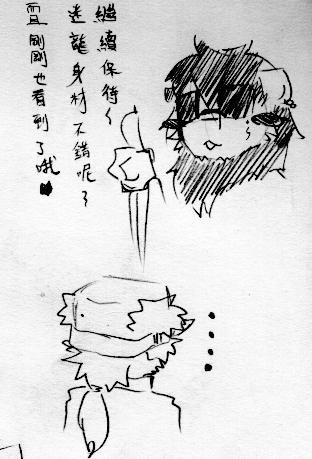 繼續保持~
達龍身材不錯呢~
雷剛剛也看到了哦